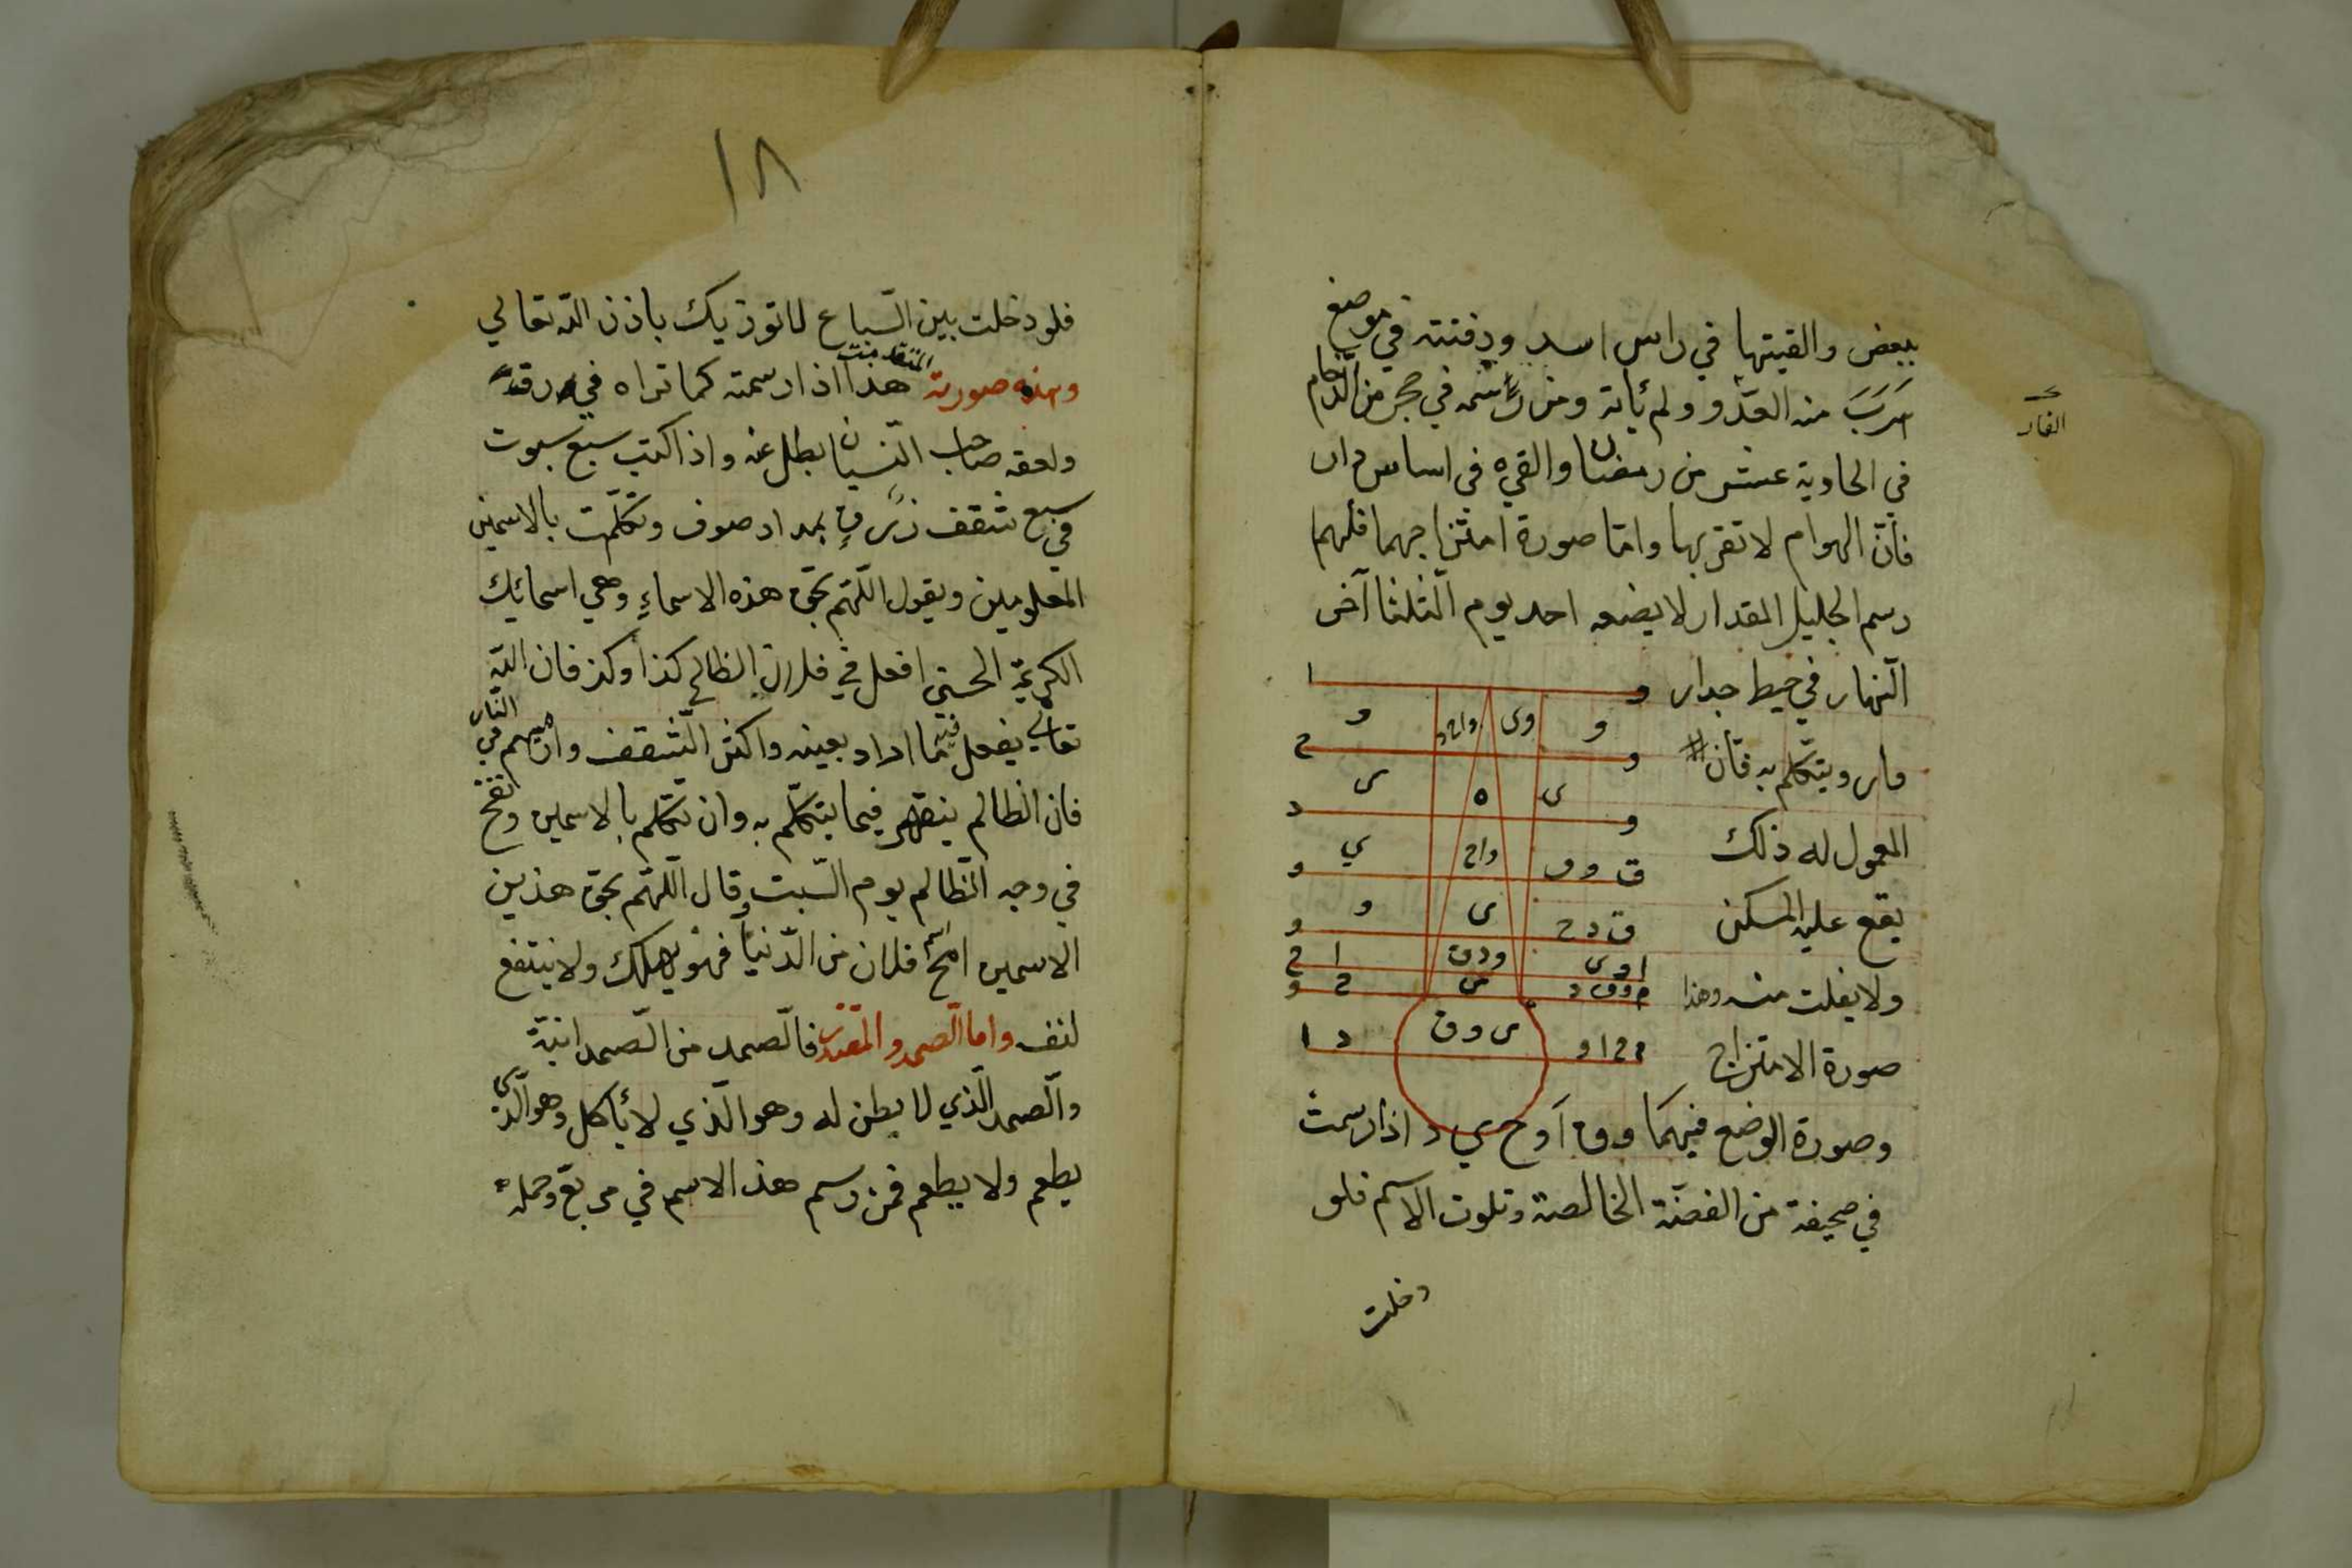 ببعض والقيتها في راس اسد ودفنته في موضع
هَرَبَ منه العدّو ولم يأته ومن رسمه في حجر من الرخام
الفار
في الحادية عشر من رمضان والقيه في اساس دار
فانّ الهوام لا تقربها وامّا صورة امتزاجهما فلهم
رسم الجليل المقدار لا يضعه احد يوم الثلثا آخر
النّهار في حيط جدار
دار ويتكلم به فانّ
المعمول له ذلك
يقع عليه المسكن
ولا يفلت منه وهذا
صورة الامتزاج
ا و
و واحد وى و
ح و
ى ه ى
د و
ي واح ق وو
و
و ى ق د ح
و
ا ح ودق اوى
و ح
ا د ى وق ح ا و
وصورة الوضع فيهما وق ا وح ي د اذا رسمت
في صحيفة من الفضّة الخالصة وتلوت الاسم فلو
دخلت
١٨
فلو دخلت بين السّباع لا توذيك باذن الله تعالي
وهذه صورته المتقدمت هذا اذا رسمته كما تراه في ورقه
ولعقه صاحب النّسيان بطل عنه واذا كتب سبع سبوت
في سبع شقف زرق بمداد صوف وتكلّمت بالاسمين
المعلومين ويقول اللّهمّ بحق هذه الاسماء وهي اسمائك
الكريمة الحسني افعل في فلان الظالم كذا وكذ فان الله
تعالي يفعل فيه ما اراد بعينه واكثر الشقف وارميهم في النار
فان الظالم ينقهر فيما يتكلّم به وان تتكلم بالاسمين ونفخ
في وجه الظالم يوم السّبت وقال اللّهمّ بحق هذين
الاسمين امح اسم فلان من الدّنيا فهو يهلك ولا ينتفع
لنف واما الصّمد والمقتدر فالصّمد من الصّمدانيّة
والصّمد الّذي لا بطن له وهو الّذي لا يأكل وهو الّذي
يطعم ولا يطعم فمن رسم هذ الاسم في مربع وحمله